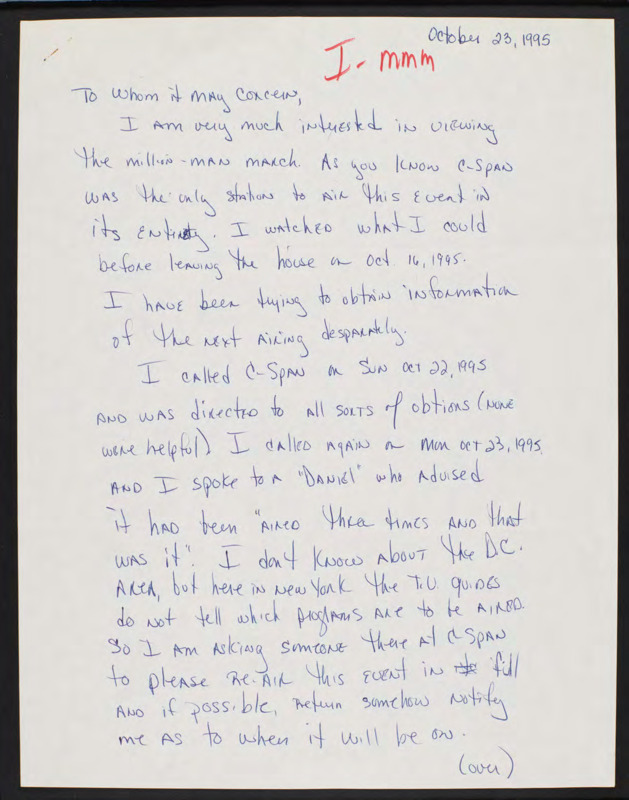 October 23, 1995
I - mmm
To whom it may concern,
I am very much intrested in viewing
the million-man march. As you know C-Span
was the only station to air this event in
its entirety. I watched what I could
before leaving the house on Oct. 16, 1995.
I have been trying to obtain information
of the next airing desparately.
I called C-Span on Sun Oct 22, 1995
and was directed to all sorts of obtions (none
were helpful) I called again on Mon Oct 23, 1995.
and I spoke to a "Daniel" who advised
it had been "aired three times and that
was it". I don't know about the D.C.
Area, but here in New York the T.V. guides
do not tell which programs are to be aired.
So I am asking someone there at C-Span
to please re-air this event in full
and if possible, return somehow notify
me as to when it will be on.
(over)